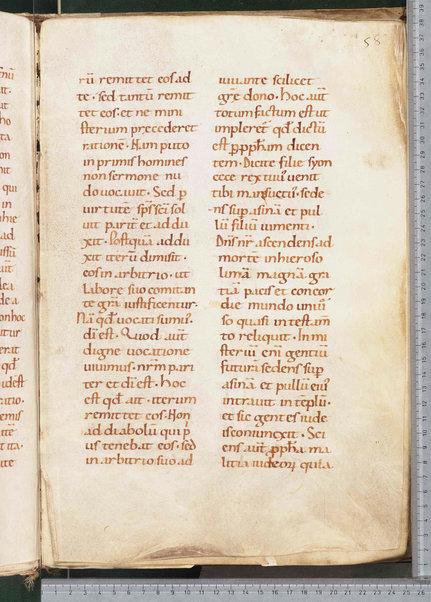 58
rū remittet eos ad
te · sed tantū remit
tet eos · et ne mini
sterium precederet
ratione · Nam puto
in primis homines
non sermone nu
do vocavit · Sed p
virtutē sp̄s sc̄i sol
vit parit̄ et addu
xit · Postquā addu
xit iterū dimisit ·
eos in arbitrio · ut
labore suo comitan
te gr̄a iustificentur ·
Nā qd̄ vocati sumus ·
dī est · Quod aut̄
digne vocatione
vivimus · nr̄m pari
ter et dī est · hoc
est qd̄ ait · iterum
remittet eos · Non
ad diabolū qui p̄
us tenebat eos · sed
in arbitrio suo ad
iuvante scilicet
gr̄e dono · hoc aut̄
totum factum est ut
impleret̄ qd̄ dictū
est p̱ p̱pham dicen
tem · Dicite filie syon
ecce rex tuus venit
tibi mansuetus · sede
ns sup̱ asinā et pul
lū filiū iumenti ·
Dn̄s nr̄ ascendens ad
mortē in hieroso
limā magnā gra
tiā pacis et concor
die mundo univ̄
so quasi in testam̄
to reliquit · In mi
steriū eni gentiū
futurā sedens sup̱
asinā et pullū eius
intravit in tēplū ·
et sic gentes iude
is coniunxit · Sci
ens aut̄ p̱pha ma
litiā iudeorꝝ quia